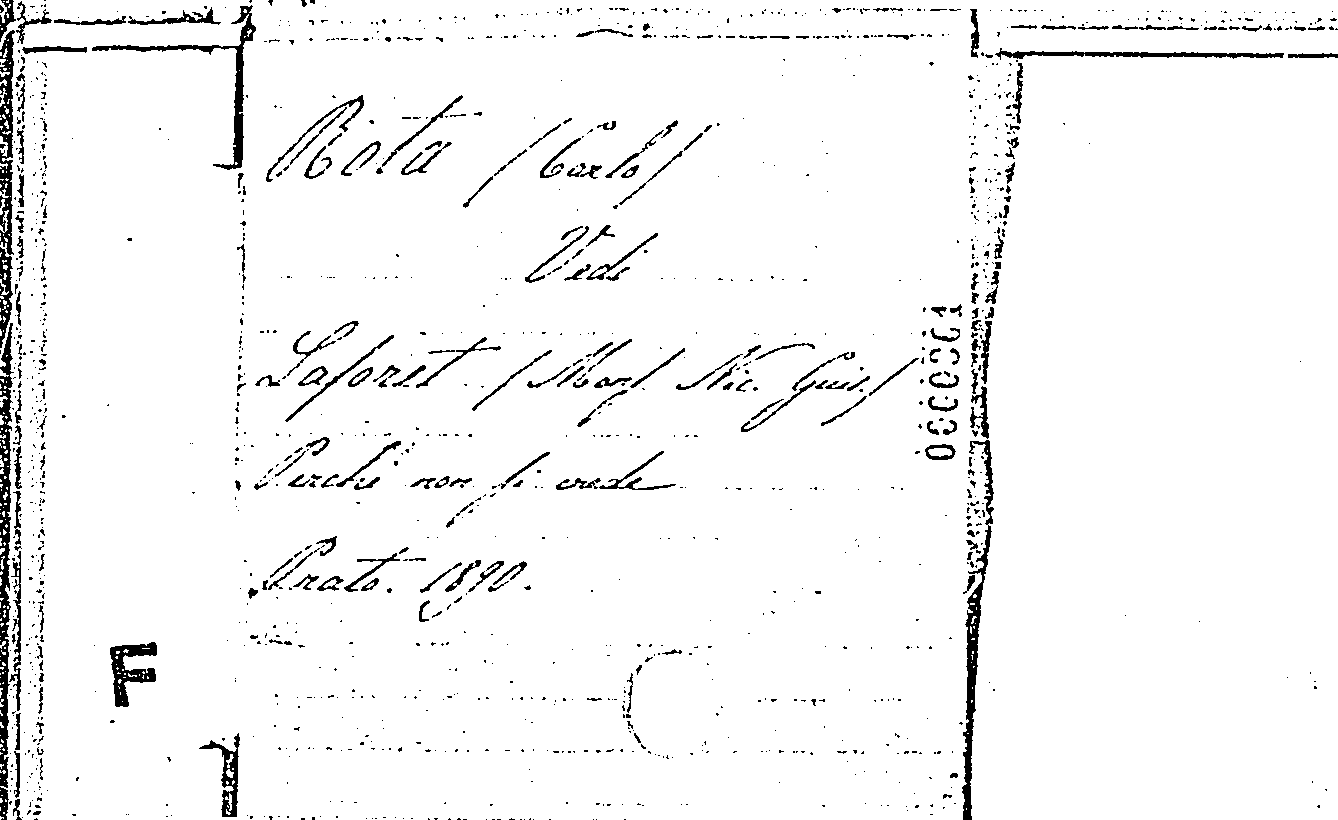 Rota /Carlo/
Vedi
Laforet /Monſ. Nic. Gius./
Perchè non ſi crede
Prato. 1890.
0000001
F